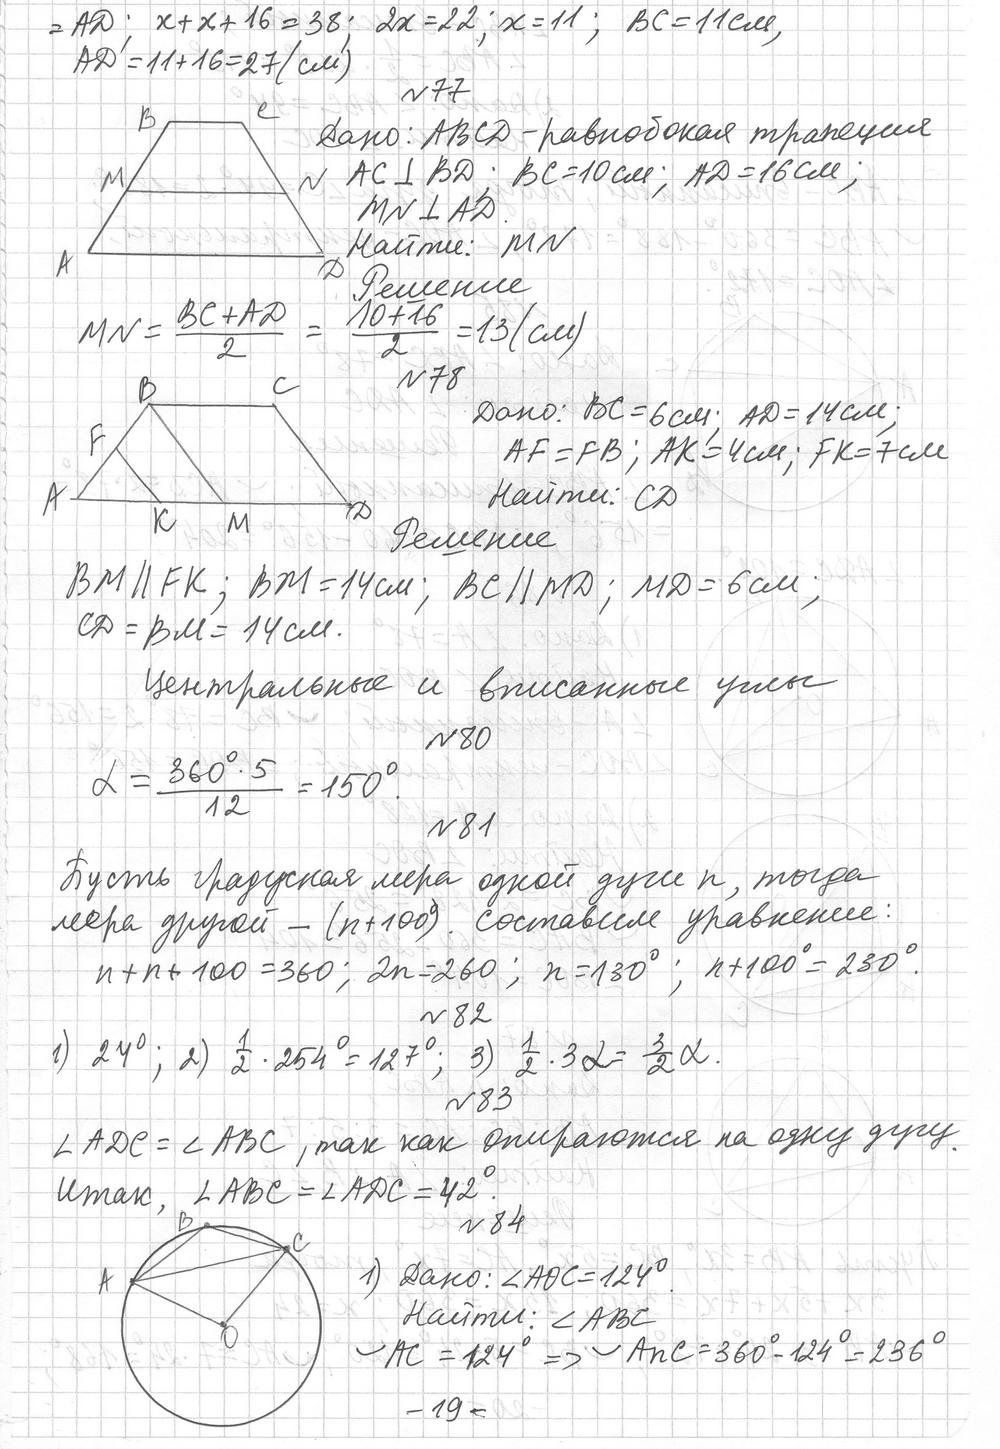 = AD; x+x+16=38; 2x=22; x=11; BC=11см,
AD=11+16=27(см)
№77
B C
Дано: ABCD-равнобокая трапеция
M N AC⊥BD; BC=10см; AD=16см;
MN⊥AD.
A D Найти: MN
Решение
MN = (BC+AD)/2 = (10+16)/2 = 13(см)
№78
B C
Дано: BC=6см; AD=14см;
F AF=FB; AK=4см; FK=7см
A K M D Найти: CD
Решение
BM//FK; BM=14см; BC//MD; MD=6см;
CD=BM=14см.
Центральные и вписанные углы
№80
α = (360°·5)/12 = 150°.
№81
Пусть градусная мера одной дуги n, тогда
мера другой – (n+100°). Составим уравнение:
n+n+100=360; 2n=260; n=130°; n+100°=230°.
№82
1) 24°; 2) 1/2·254°=127°; 3) 1/2·3α=3/2α.
№83
∠ADC=∠ABC, так как опираются на одну дугу.
Итак, ∠ABC=∠ADC=42°.
№84
B C
A O
1) Дано: ∠AOC=124°
Найти: ∠ABC
◡AC=124° => ◡AnC=360°-124°=236°
-19-